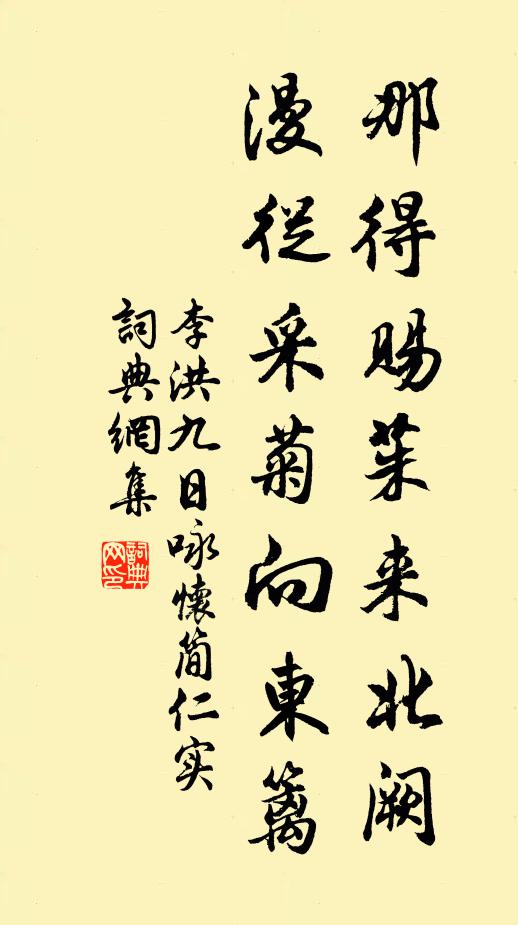 那得赐茱来北阙
漫從采菊向東篱
李洪九日咏懷简仁实
詞典網集
詞典
网印